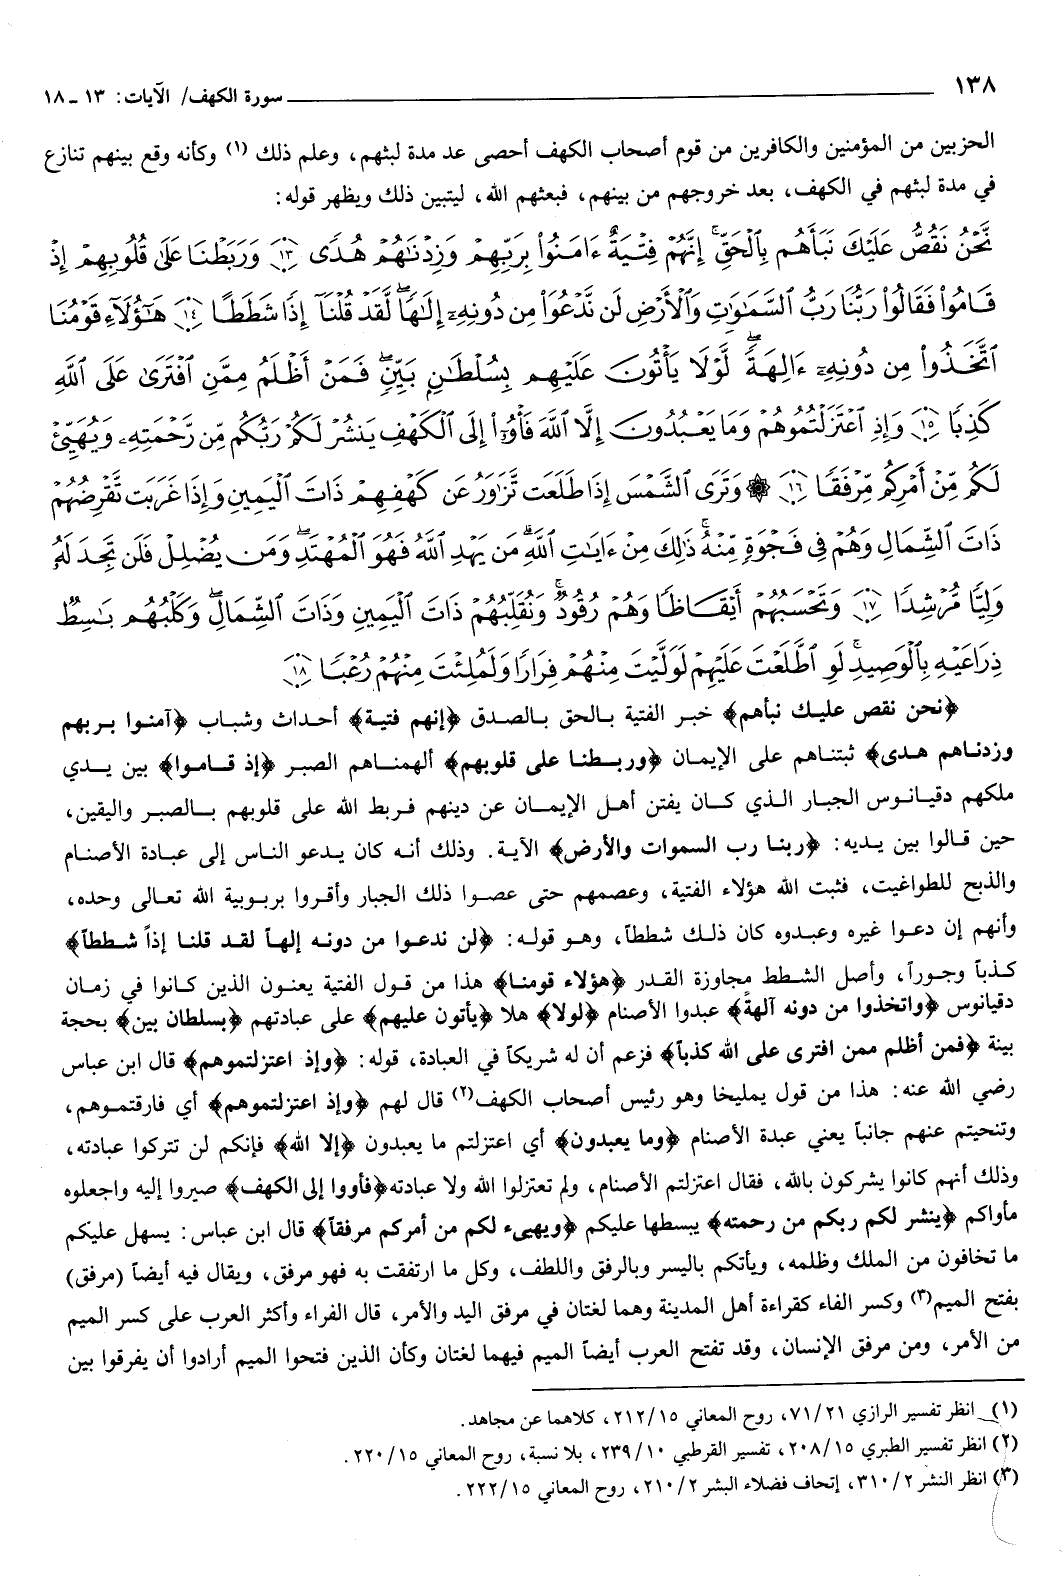 ١٣٨
سورة الكهف/ الآيات: ١٣ ـ ١٨
الحزبين من المؤمنين والكافرين من قوم أصحاب الكهف أحصى عد مدة لبثهم، وعلم ذلك (١) وكأنه وقع بينهم تنازع
في مدة لبثهم في الكهف، بعد خروجهم من بينهم، فبعثهم الله، ليتبين ذلك ويظهر قوله:
نَّحْنُ نَقُصُّ عَلَيْكَ نَبَأَهُم بِٱلْحَقِّ ۚ إِنَّهُمْ فِتْيَةٌ ءَامَنُوا۟ بِرَبِّهِمْ وَزِدْنَـٰهُمْ هُدًى ﴿١٣﴾ وَرَبَطْنَا عَلَىٰ قُلُوبِهِمْ إِذْ
قَامُوا۟ فَقَالُوا۟ رَبُّنَا رَبُّ ٱلسَّمَـٰوَٰتِ وَٱلْأَرْضِ لَن نَّدْعُوَا۟ مِن دُونِهِۦٓ إِلَـٰهًا ۖ لَّقَدْ قُلْنَآ إِذًا شَطَطًا ﴿١٤﴾ هَـٰٓؤُلَآءِ قَوْمُنَا
ٱتَّخَذُوا۟ مِن دُونِهِۦٓ ءَالِهَةً ۖ لَّوْلَا يَأْتُونَ عَلَيْهِم بِسُلْطَـٰنٍۭ بَيِّنٍ ۖ فَمَنْ أَظْلَمُ مِمَّنِ ٱفْتَرَىٰ عَلَى ٱللَّهِ
كَذِبًا ﴿١٥﴾ وَإِذِ ٱعْتَزَلْتُمُوهُمْ وَمَا يَعْبُدُونَ إِلَّا ٱللَّهَ فَأْوُۥٓا۟ إِلَى ٱلْكَهْفِ يَنشُرْ لَكُمْ رَبُّكُم مِّن رَّحْمَتِهِۦ وَيُهَيِّئْ
لَكُم مِّنْ أَمْرِكُم مِّرْفَقًا ﴿١٦﴾ ۞ وَتَرَى ٱلشَّمْسَ إِذَا طَلَعَت تَّزَٰوَرُ عَن كَهْفِهِمْ ذَاتَ ٱلْيَمِينِ وَإِذَا غَرَبَت تَّقْرِضُهُمْ
ذَاتَ ٱلشِّمَالِ وَهُمْ فِى فَجْوَةٍ مِّنْهُ ۚ ذَٰلِكَ مِنْ ءَايَـٰتِ ٱللَّهِ ۗ مَن يَهْدِ ٱللَّهُ فَهُوَ ٱلْمُهْتَدِ ۖ وَمَن يُضْلِلْ فَلَن تَجِدَ لَهُۥ
وَلِيًّا مُّرْشِدًا ﴿١٧﴾ وَتَحْسَبُهُمْ أَيْقَاظًا وَهُمْ رُقُودٌ ۚ وَنُقَلِّبُهُمْ ذَاتَ ٱلْيَمِينِ وَذَاتَ ٱلشِّمَالِ ۖ وَكَلْبُهُم بَـٰسِطٌ
ذِرَاعَيْهِ بِٱلْوَصِيدِ ۚ لَوِ ٱطَّلَعْتَ عَلَيْهِمْ لَوَلَّيْتَ مِنْهُمْ فِرَارًا وَلَمُلِئْتَ مِنْهُمْ رُعْبًا ﴿١٨﴾
﴿نحن نقص عليك نبأهم﴾ خبر الفتية بالحق بالصدق ﴿إنهم فتية﴾ أحداث وشباب ﴿آمنوا بربهم
وزدناهم هدى﴾ ثبتناهم على الإيمان ﴿وربطنا على قلوبهم﴾ ألهمناهم الصبر ﴿إذ قاموا﴾ بين يدي
ملكهم دقيانوس الجبار الذي كان يفتن أهل الإيمان عن دينهم فربط الله على قلوبهم بالصبر واليقين،
حين قالوا بين يديه: ﴿ربنا رب السموات والأرض﴾ الآية. وذلك أنه كان يدعو الناس إلى عبادة الأصنام
والذبح للطواغيت، فثبت الله هؤلاء الفتية، وعصمهم حتى عصوا ذلك الجبار وأقروا بربوبية الله تعالى وحده،
وأنهم إن دعوا غيره وعبدوه كان ذلك شططاً، وهو قوله: ﴿لن ندعوا من دونه إلهاً لقد قلنا إذاً شططاً﴾
كذباً وجوراً، وأصل الشطط مجاوزة القدر ﴿هؤلاء قومنا﴾ هذا من قول الفتية يعنون الذين كانوا في زمان
دقيانوس ﴿واتخذوا من دونه آلهة﴾ عبدوا الأصنام ﴿لولا﴾ هلا ﴿يأتون عليهم﴾ على عبادتهم ﴿بسلطان بين﴾ بحجة
بينة ﴿فمن أظلم ممن افترى على الله كذباً﴾ فزعم أن له شريكاً في العبادة، قوله: ﴿وإذ اعتزلتموهم﴾ قال ابن عباس
رضي الله عنه: هذا من قول يمليخا وهو رئيس أصحاب الكهف(٢) قال لهم ﴿وإذ اعتزلتموهم﴾ أي فارقتموهم،
وتنحيتم عنهم جانباً يعني عبدة الأصنام ﴿وما يعبدون﴾ أي اعتزلتم ما يعبدون ﴿إلا الله﴾ فإنكم لن تتركوا عبادته،
وذلك أنهم كانوا يشركون بالله، فقال اعتزلتم الأصنام، ولم تعتزلوا الله ولا عبادته﴿فأووا إلى الكهف﴾ صيروا إليه واجعلوه
مأواكم ﴿ينشر لكم ربكم من رحمته﴾ يبسطها عليكم ﴿ويهيىء لكم من أمركم مرفقاً﴾ قال ابن عباس: يسهل عليكم
ما تخافون من الملك وظلمه، ويأتكم باليسر وبالرفق واللطف، وكل ما ارتفقت به فهو مرفق، ويقال فيه أيضاً (مرفق)
بفتح الميم(٣) وكسر الفاء كقراءة أهل المدينة وهما لغتان في مرفق اليد والأمر، قال الفراء وأكثر العرب على كسر الميم
من الأمر، ومن مرفق الإنسان، وقد تفتح العرب أيضاً الميم فيهما لغتان وكأن الذين فتحوا الميم أرادوا أن يفرقوا بين
(١) انظر تفسير الرازي ٧١/٢١، روح المعاني ٢١٢/١٥، كلاهما عن مجاهد.
(٢) انظر تفسير الطبري ٢٠٨/١٥، تفسير القرطبي ٢٣٩/١٠، بلا نسبة، روح المعاني ٢٢٠/١٥.
(٣) انظر النشر ٣١٠/٢، إتحاف فضلاء البشر ٢١٠/٢، روح المعاني ٢٢٢/١٥.